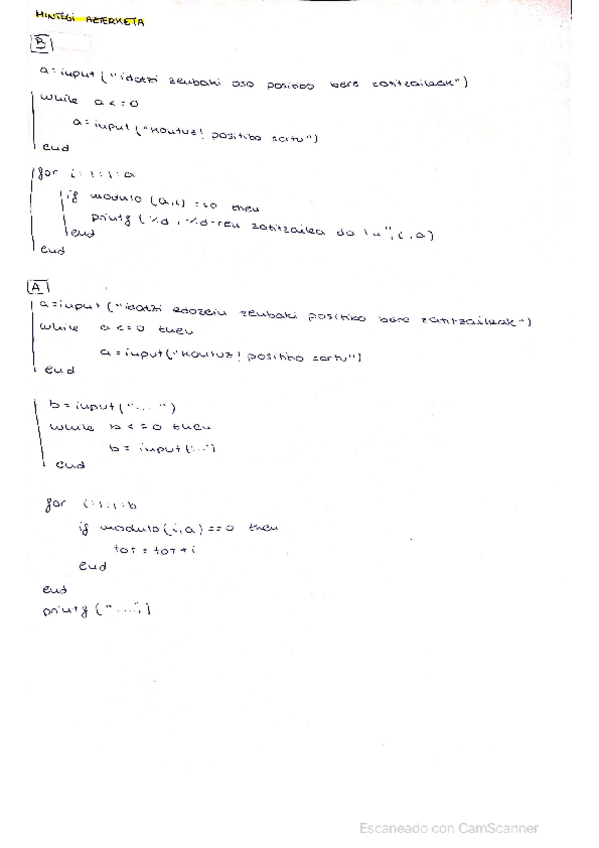 MINTEGI AZTERKETA
B
a=input("idatzi zenbaki oso positibo bere zatitzaileak")
while a<=0
a=input("Kontuz! positibo sartu")
end
for i=1:1:a
if modulo(a,i)==0 then
printf(%d, %d-ren zatitzailea da \n", i, a)
end
end
A
a=input("idatzi edozein zenbaki positibo bere zatitzaileak")
while a<=0 then
a=input("Kontuz! positibo sartu")
end
b=input("...")
while b<=0 then
b=input("...")
end
for i=1:1:b
if modulo(i,a)==0 then
tot=tot+i
end
end
printf("...",)
Escaneado con CamScanner